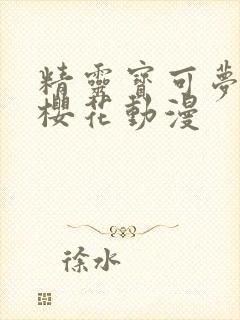 精靈寶可夢
櫻花動漫
徐水